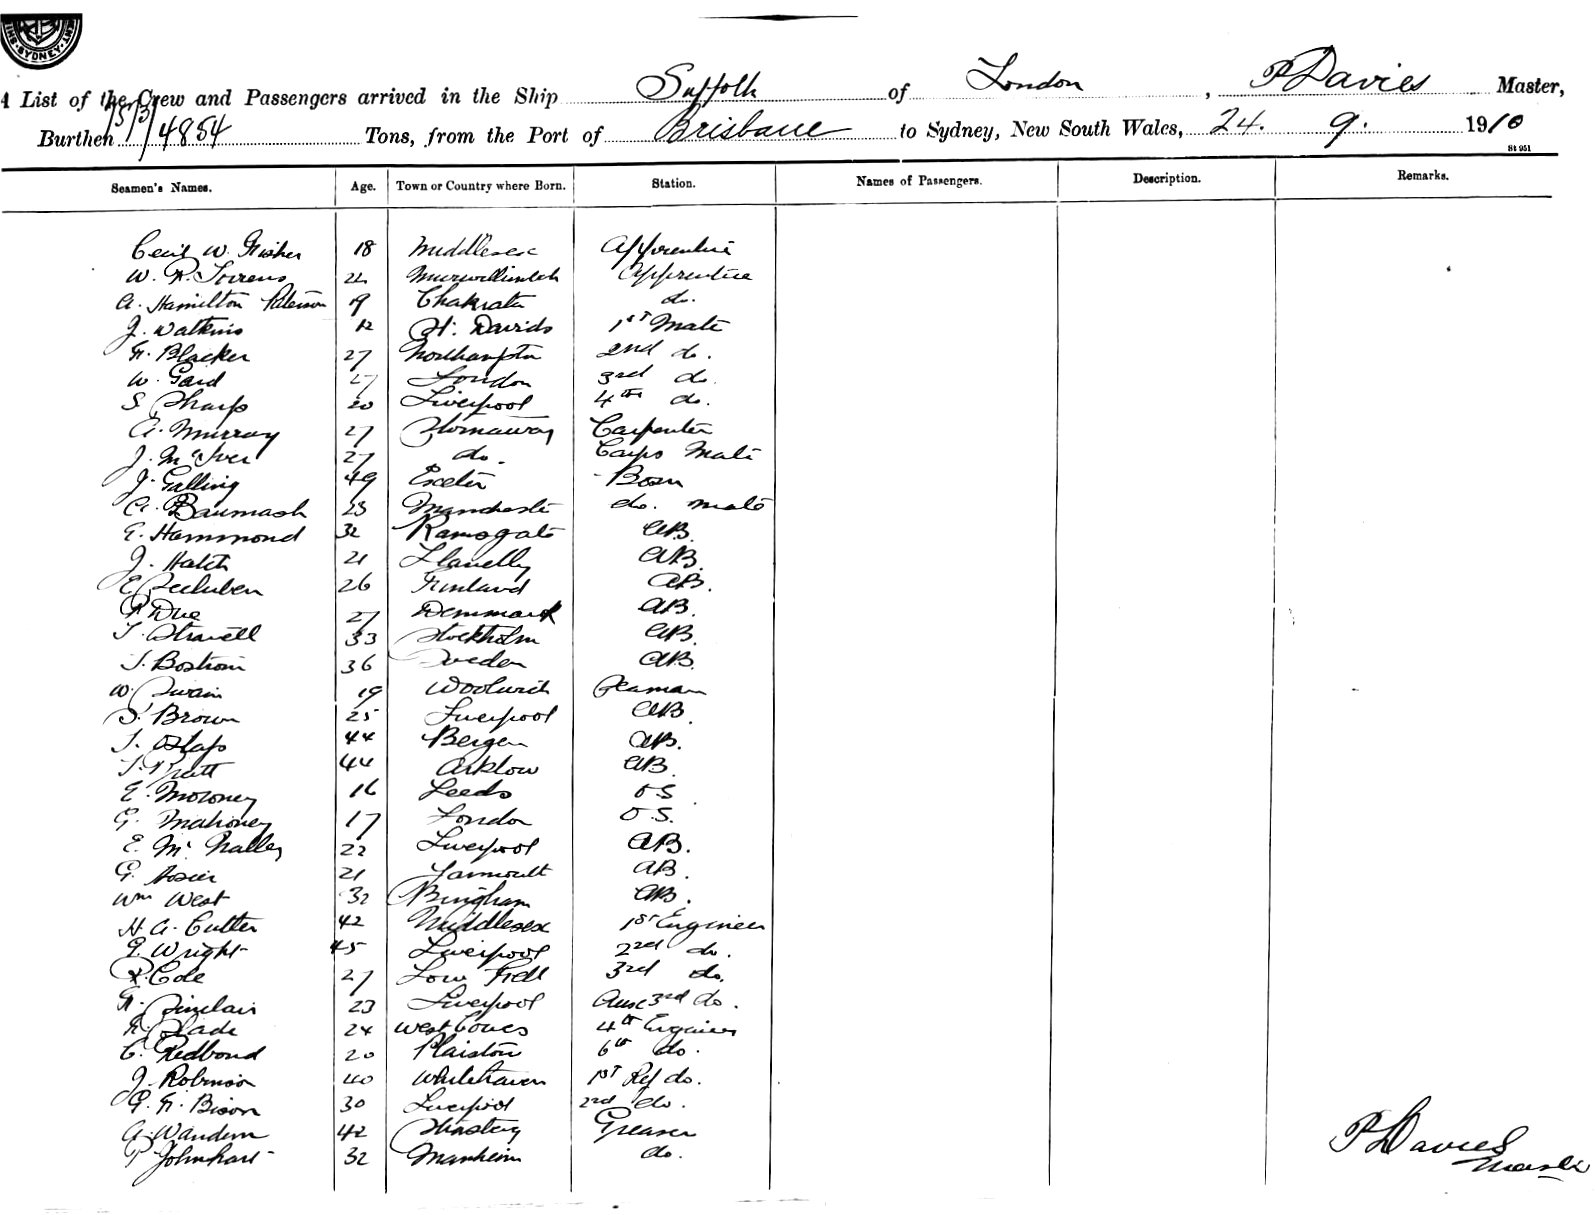 SYDNEY
A List of the Crew and Passengers arrived in the Ship Suffolk of London, P Davies Master,
Burthen 4854 Tons, from the Port of Brisbane to Sydney, New South Wales, 24. 9. 1910
St 951
Seamen's Names. Age. Town or Country where Born. Station. Names of Passengers. Description. Remarks.
Cecil W. Fisher 18 Middlesex Apprentice
W. R. Torrens Apprentice
A. Hamilton Paterson 19 Chakrata do.
J. Watkins St. Davids 1st Mate
F. Blacker 27 Northampton 2nd do.
W. Gard 27 London 3rd do.
S. Sharp 20 Liverpool 4th do.
A. Murray 27 Stornaway Carpenter
J. McIver 27 do. Carps Mate
J. Galling 49 Exeter Bosn
A. Baumash 23 Manchester do. mate
E. Hammond 32 Ramsgate AB.
J. Hatch 21 Llanelly AB.
E. 26 Finland AB.
P. Due 27 Denmark AB.
33 Stockholm AB.
J. Bostrom 36 Sweden AB.
W. Swain 19 Woolwich Seaman
S. Brown 25 Liverpool AB.
44 Bergen AB.
J. Pratt 44 Arklow AB.
E. Moroney 16 Leeds O S.
G. Mahoney 17 London O. S.
E. Mc Nalley 22 Liverpool AB.
G. Hosier 21 Yarmouth AB.
Wm West 32 Bingham AB.
H. A. Cutter 42 Middlesex 1st Engineer
G. Wright 45 Liverpool 2nd do.
R. Cole 27 Low Fell 3rd do.
F. Sinclair 23 Liverpool Aux 3rd do.
F. Slade 24 West Cowes 4th Engineer
C. Redbond 20 Plaistow 6th do.
J. Robinson 40 Whitehaven 1st Ref do.
G. F. Bison 30 Liverpool 2nd do.
A. 42 Greaser
P. 32 Manheim do.
P Davies
Master